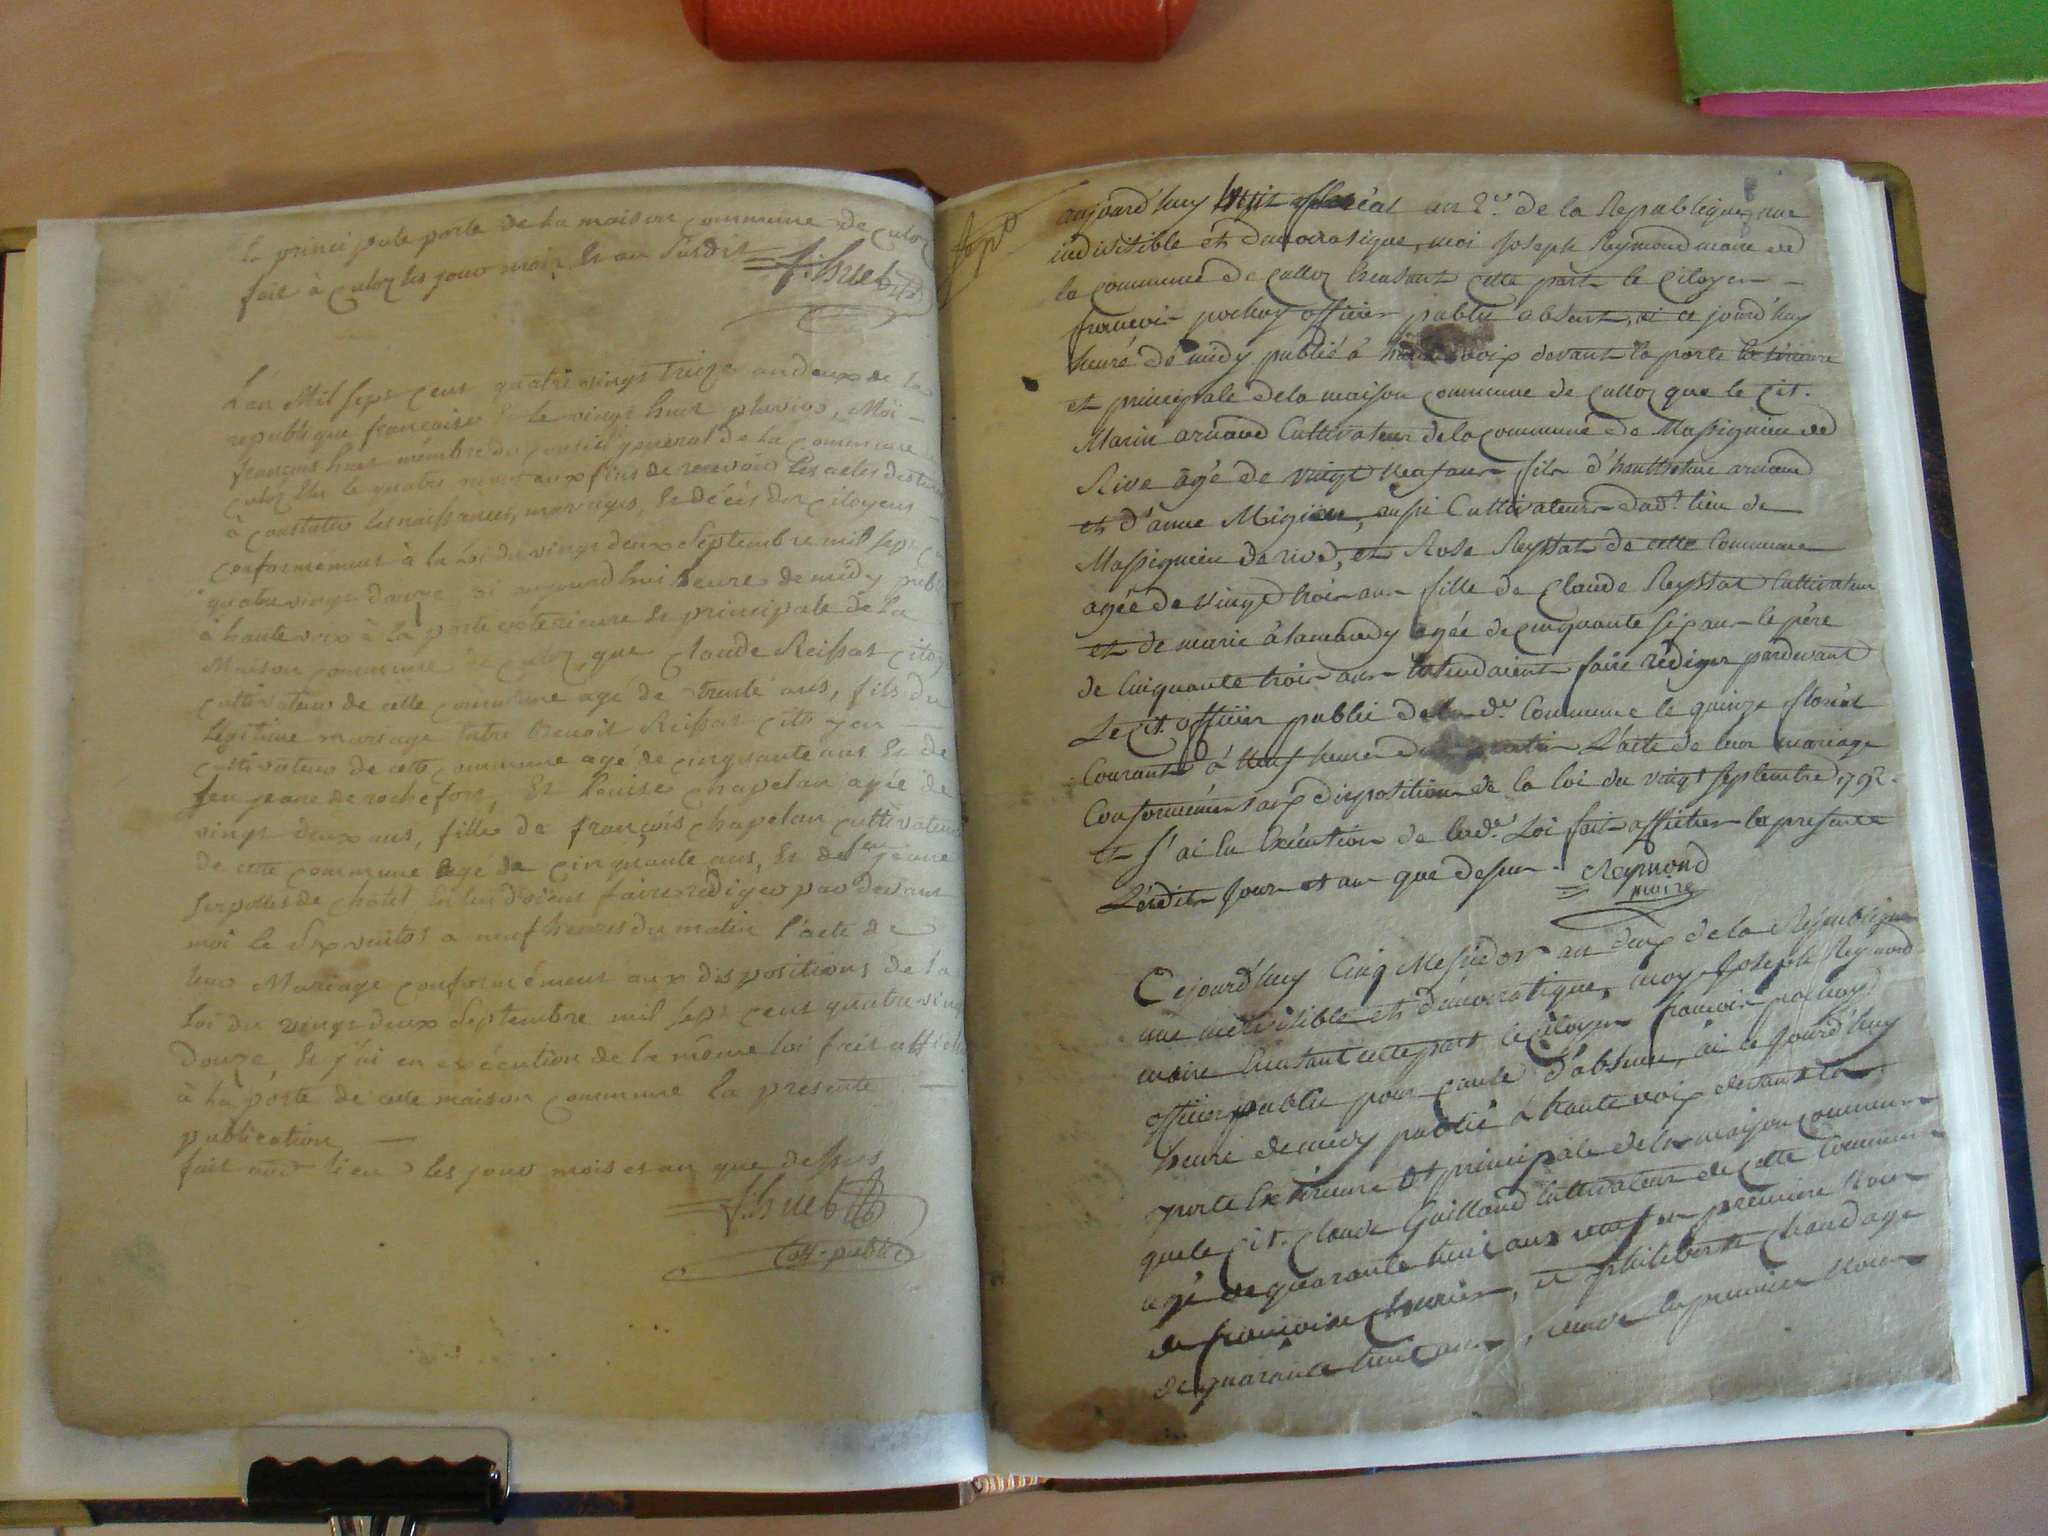 la principale porte de la maison commune de culoz
fait à culoz les jour mois & an susdit f. huet
L'an Mil sept cent quatre vingt treize an deux de la
republique française & le vingt huit pluviose, Moi
françois huet membre du conseil general de la commune
culoz élu le quatre aux fins de recevoir les actes destinés
à constater les naissances, mariages, & décès des citoyens
conformement à la Loi du vingt deux Septembre mil sept cent
quatre vingt douze, ai aujourd'hui heure de midy publié
à haute voix à la porte exterieure & principale de la
Maison commune de culoz, que claude Reissat citoyen
cultivateur de cette commune agé de trente ans, fils du
légitime mariage entre Benoit Reissat citoyen
cultivateur de cette commune agé de cinquante ans & de
feu jeane de rochefort, & Louise chapelan agée de
vingt deux ans, fille de françois chapelan cultivateur
de cette commune agé de cinquante ans, & de feu jeane
Serpollet de chatel faire rédiger par devant
moi le dix ventos a neuf heures du matin l'acte de
leur Mariage conformément aux dispositions de la
Loi du vingt deux Septembre mil sept cent quatre vingt
douze, & j'ai en exécution de la même loi fait afficher
à la porte de cette maison commune la presente
publication
fait audt lieu les jour mois et an que dessus
f. huet
off. public
aujourd'huy huit floréal an 2e. de la Republique une
indivisible et democratique, moi Joseph Reymond maire de
la commune de Culloz cette part le Citoyen
francois pochoy officier public absent, ai ce jourd'huy
heure de midy publié à haute voix devant la porte extérieure
et principale dela maison commune de Culloz que le Cit.
Marin arnaud Cultivateur de la commune de Massignieu de
Rive agé de vingt neuf ans fils d'anthelme arnaud
et d'anne Migieu, aussi Cultivateurs dudt. lieu de
Massignieu de rive, et Rose Reyssat de cette Commune
agée de vingt trois ans fille de Claude Reyssat Cultivateur
et de marie agée de cinquante six ans le père
de Cinquante trois ans entendaient faire rédiger pardevant
Le Cit. officier public de la de. Commune le quinze floréal
Courant à neuf heures du matin L'acte de leur mariage
Conformément aux dispositions de la loi du vingt septembre 1792.
et j'ai en Exécution de lade. Loi fait afficher la presente
Lesdits Jour et an que dessus. Reymond
maire
Cejourd'huy Cinq Messidor an deux de la République
une indivisible et démocratique, moy Joseph Reymond
maire cette part le Citoyen francois pochoy
officier public pour cause d'absence, ai ce jourd'huy
heure de midy publié à haute voix devant la
porte Extérieure et principale de la maison commune
que le Cit. Claude Guilland Cultivateur de cette Commune
agé de quarante huit ans veuf en première Noces
de francoise, et philiberte
de quarante huit ans, veuve en premier Noces